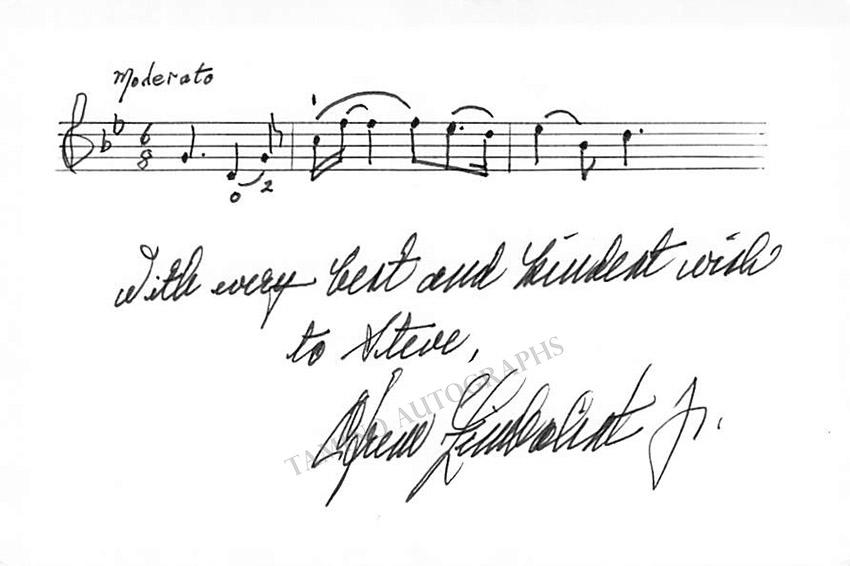 Moderato
6
8
0 2
With every best and kindest wish
to Steve,
Efrem Zimbalist Jr.
TAMINO AUTOGRAPHS